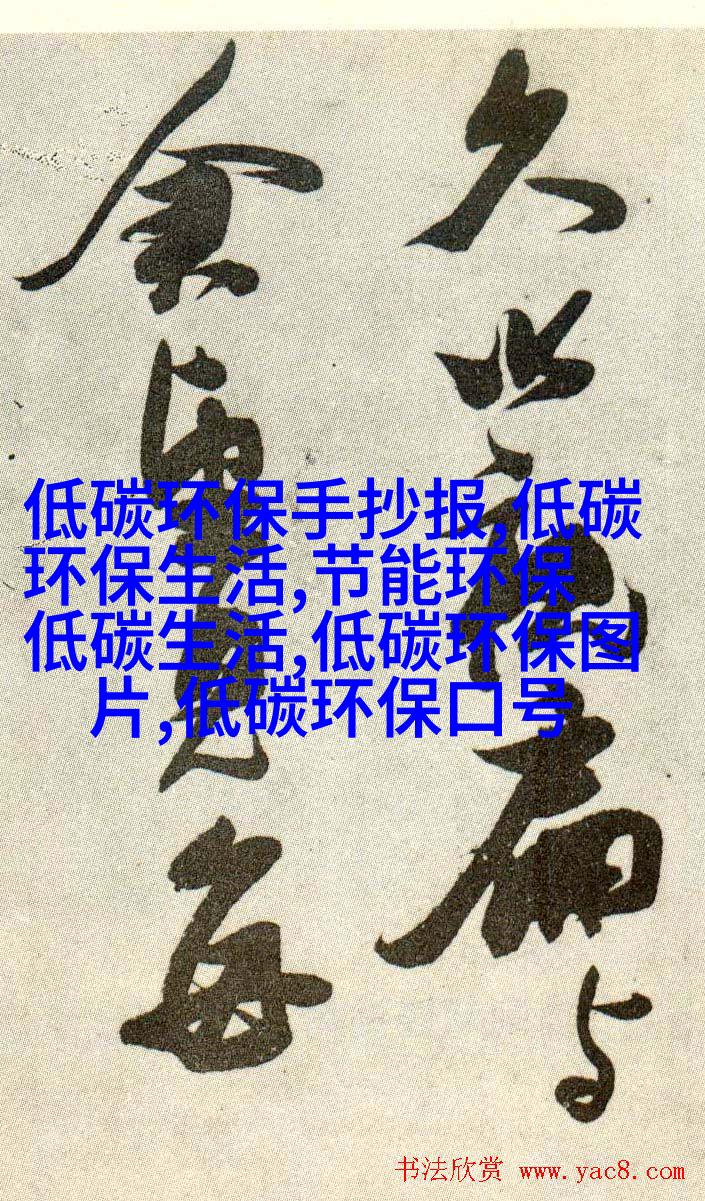 久此新扁与
余
每
低碳环保手抄报,低碳
环保生活,节能环保
低碳生活,低碳环保图
片,低碳环保口号
书法欣赏 www.yac8.com